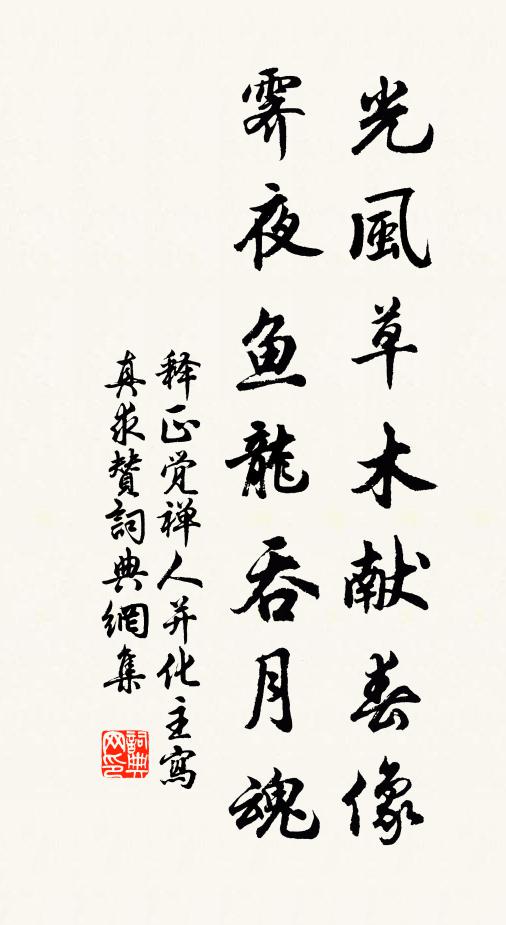 光風草木献春像
霁夜鱼龍吞月魂
释正觉禅人并化主寫
真求贊詞典網集
詞典网印